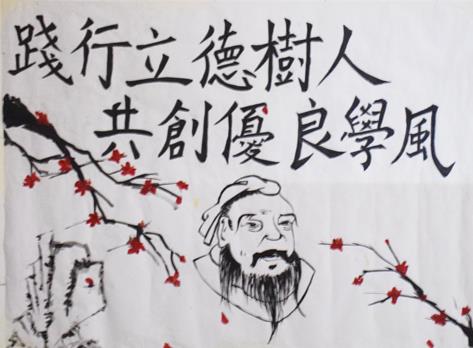 踐行立德樹人
共創優良學風